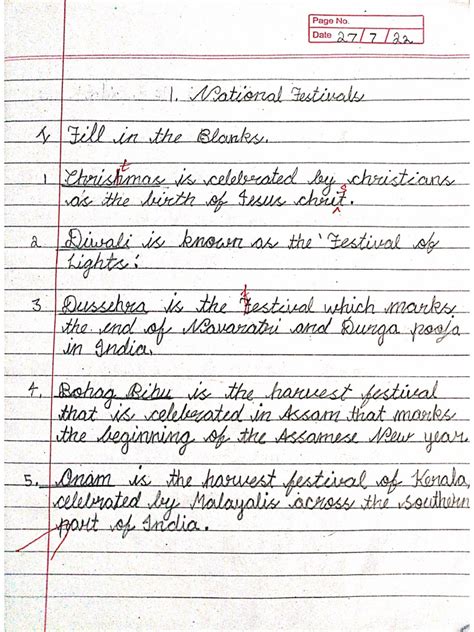 Page No.
Date 27/7/22
1. National Festivals
I Fill in the Blanks.
t
1 Chrishmas is celebrated by christians
s
as the birth of Jesus chrit.
2 Diwali is known as the 'Festival of
Lights'.
f
3. Dussehra is the Festival which marks
the end of Navaratri and Durga pooja
in India.
4. Bohag Bihu is the harvest festival
that is celebrated in Assam that marks
the beginning of the Assamese New year.
5. Onam is the harvest festival of Kerala,
celebrated by Malayalis across the southern
part of India.